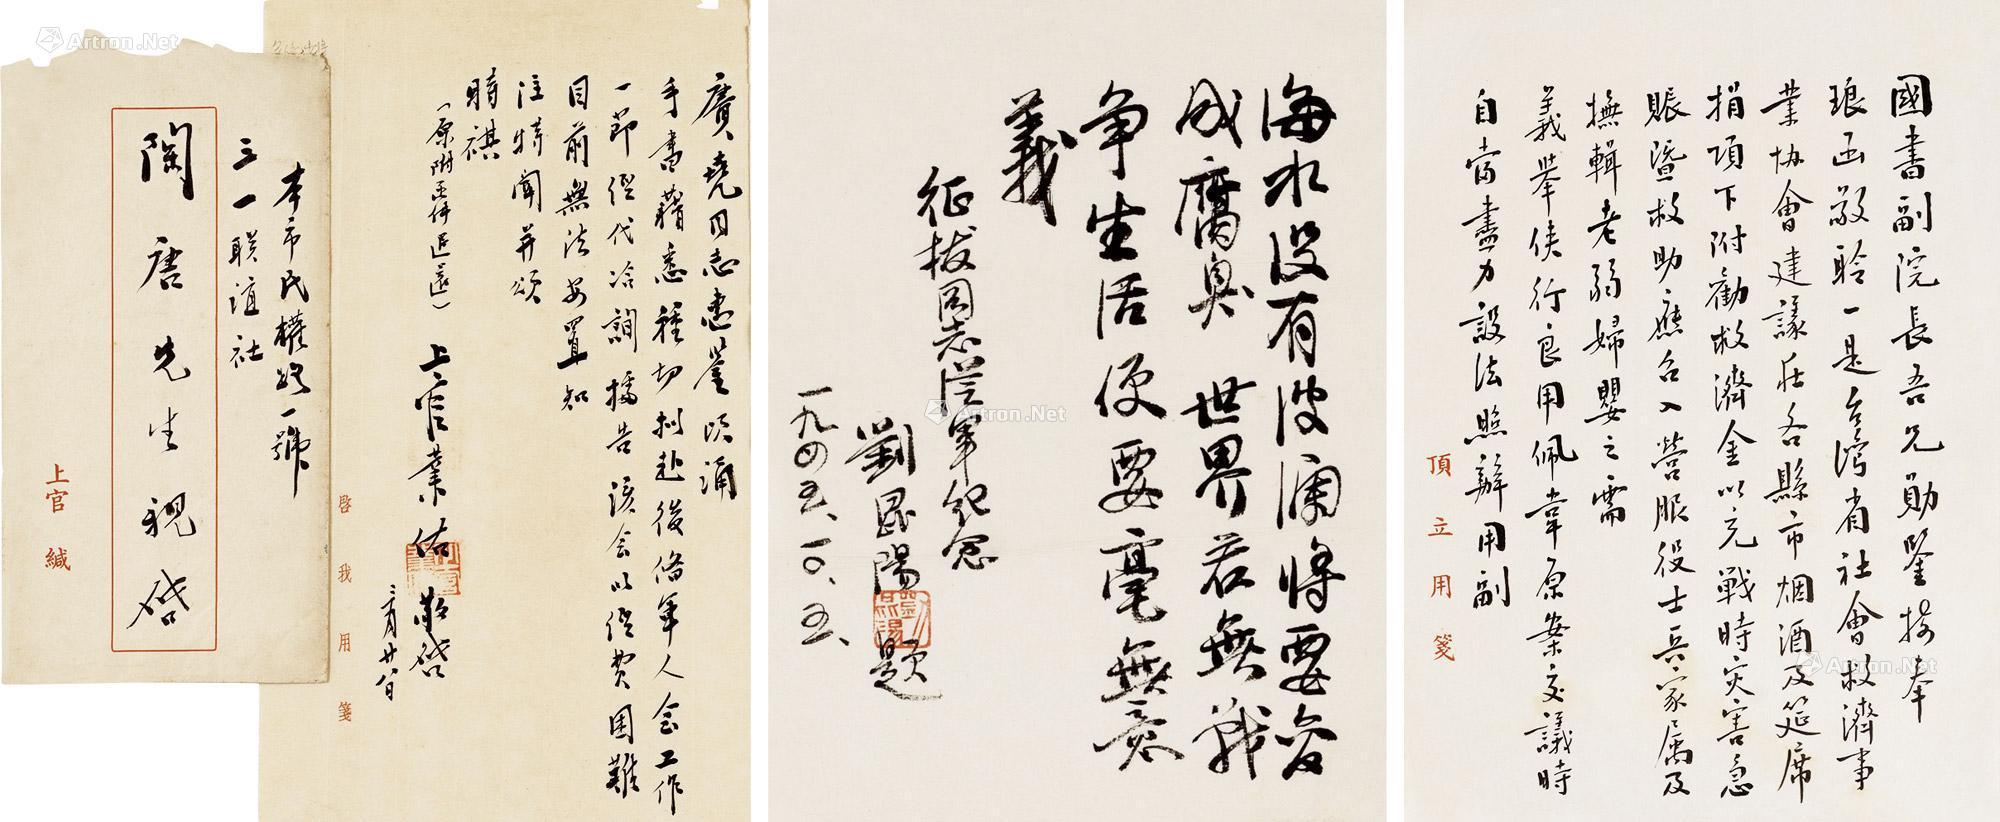 本市民權路一號
三一联誼社
陶唐先生親啓
上官緘
賡堯同志惠鑒頃誦
手書藉悉種切利赴後备軍人会工作
一節經代洽詢據告該会以經費困難
目前無法安置知
注特聞并頌
時祺
(原附函件退還)
上官業佑敬啓
三月廿八日
啓我用箋
海水没有波涛将要变
成腐臭世界若無戰
争生活便要毫無意
義
征拔同志從軍纪念
劉 陽題
一九四五、一〇、五、
國書副院長吾兄勛鑒接奉
琅函敬聆一是台灣省社會救濟事
業協會建議在各縣市烟酒及筵席
捐項下附勸救濟金以充戰時灾害急
賑暨救助應召入營服役士兵家属及
撫輯老弱婦嬰之需
義舉俠行良用佩韋原案交議時
自當盡力設法照辦用副
頂立用箋
Artron.Net
Artron.Net
Artron.Net
Artron.Net
Artron.Net